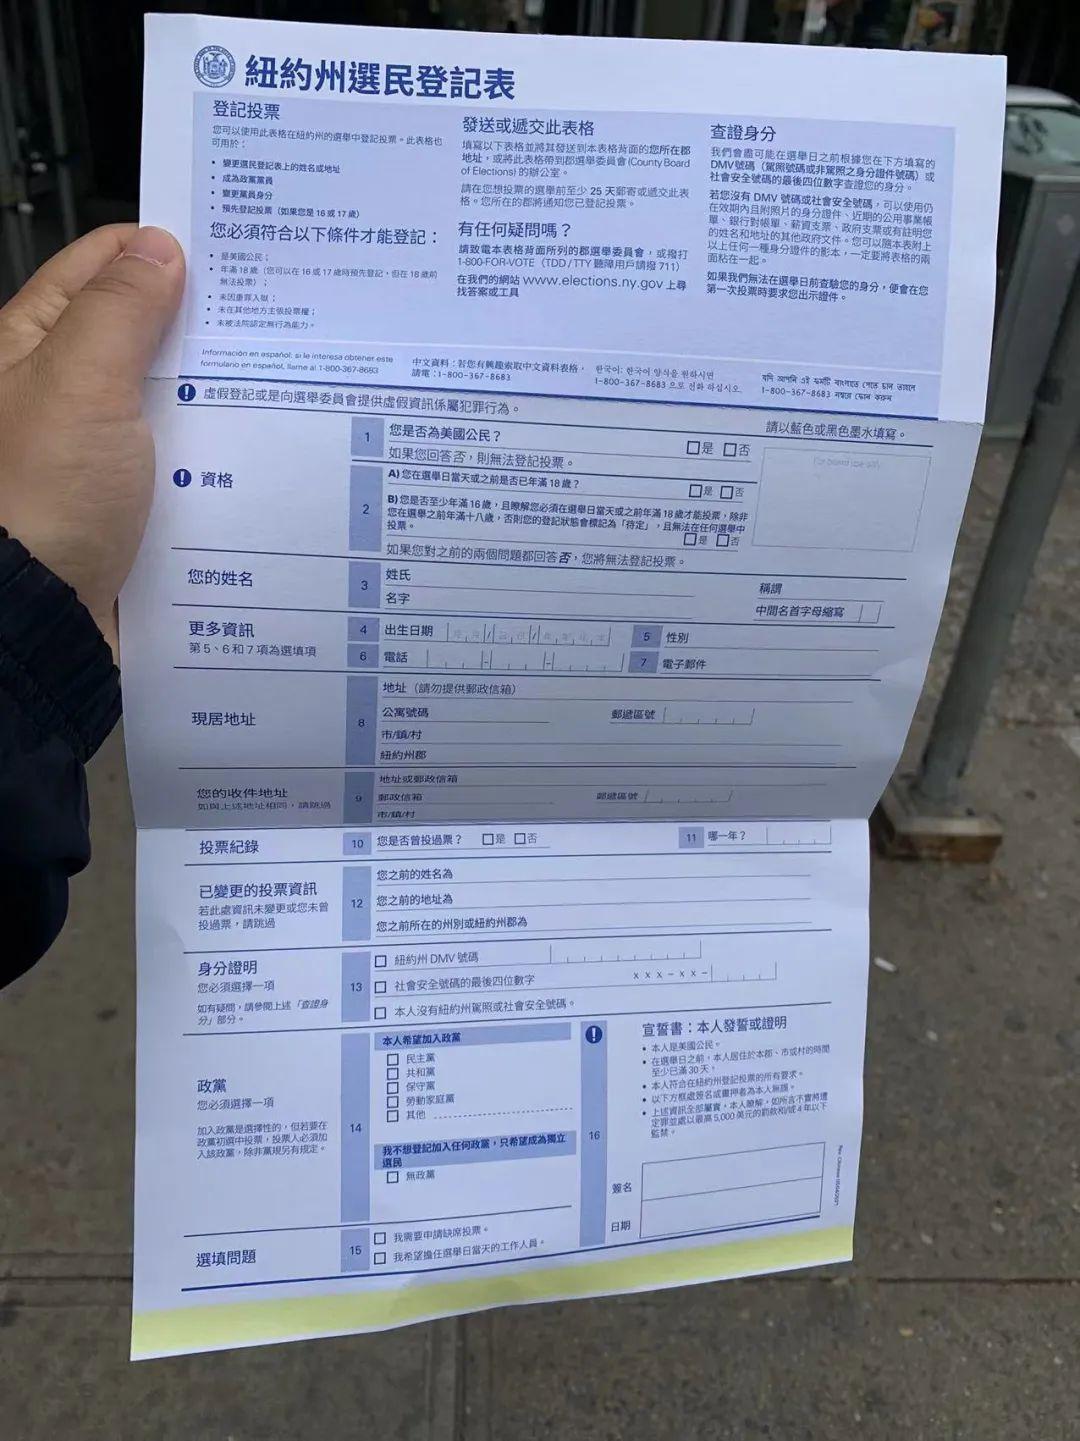 紐約州選民登記表
登記投票
您可以使用此表格在紐約州的選舉中登記投票。此表格也
可用於：
• 變更選民登記表上的姓名或地址
• 成為政黨黨員
• 變更黨員身分
• 預先登記投票（如果您是 16 或 17 歲）
您必須符合以下條件才能登記：
• 是美國公民；
• 年滿 18 歲（您可以在 16 或 17 歲時預先登記，但在 18 歲前
無法投票）；
• 未因重罪入獄；
• 未在其他地方主張投票權；
• 未被法院認定無行為能力。
發送或遞交此表格
填寫以下表格並將其發送到本表格背面的您所在郡
地址，或將此表格帶到郡選舉委員會 (County Board
of Elections) 的辦公室。
請在您想投票的選舉前至少 25 天郵寄或遞交此表
格。您所在的郡將通知您已登記投票。
有任何疑問嗎？
請致電本表格背面所列的郡選舉委員會，或撥打
1-800-FOR-VOTE（TDD/TTY 聽障用戶請撥 711）
在我們的網站 www.elections.ny.gov 上尋
找答案或工具
查證身分
我們會盡可能在選舉日之前根據您在下方填寫的
DMV號碼（駕照號碼或非駕照之身分證件號碼）或
社會安全號碼的最後四位數字查證您的身分。
若您沒有 DMV 號碼或社會安全號碼，可以使用仍
在效期內且附照片的身分證件、近期的公用事業帳
單、銀行對帳單、薪資支票、政府支票或有註明您
的姓名和地址的其他政府文件。您可以隨本表附上
以上任何一種身分證件的影本，一定要將表格的兩
面粘在一起。
如果我們無法在選舉日前查驗您的身分，便會在您
第一次投票時要求您出示證件。
Información en español: si le interesa obtener este
formulario en español, llame al 1-800-367-8683
中文資料：若您有興趣索取中文資料表格，
請電：1-800-367-8683
한국어: 한국어 양식을 원하시면
1-800-367-8683 으로 전화 하십시오.
যদি আপনি এই ফর্মটি বাংলাতে পেতে চান তাহলে
1-800-367-8683 নম্বরে ফোন করুন
虛假登記或是向選舉委員會提供虛假資訊係屬犯罪行為。
請以藍色或黑色墨水填寫。
資格
1 您是否為美國公民？ 是 否
如果您回答否，則無法登記投票。
For board use only
2 A) 您在選舉日當天或之前是否已年滿 18 歲？ 是 否
B) 您是否至少年滿 16 歲，且瞭解您必須在選舉日當天或之前年滿 18 歲才能投票，除非
您在選舉之前年滿十八歲，否則您的登記狀態會標記為「待定」，且無法在任何選舉中
投票。 是 否
如果您對之前的兩個問題都回答否，您將無法登記投票。
您的姓名
3 姓氏 稱謂
名字 中間名首字母縮寫
更多資訊
第 5、6 和 7 項為選填項
4 出生日期 5 性別
6 電話 7 電子郵件
現居地址
8 地址（請勿提供郵政信箱）
公寓號碼 郵遞區號
市/鎮/村
紐約州郡
您的收件地址
如與上述地址相同，請跳過
9 地址或郵政信箱
郵政信箱 郵遞區號
市/鎮/村
投票紀錄
10 您是否曾投過票？ 是 否 11 哪一年？
已變更的投票資訊
若此處資訊未變更或您未曾
投過票，請跳過
12 您之前的姓名為
您之前的地址為
您之前所在的州別或紐約州郡為
身分證明
您必須選擇一項
如有疑問，請參閱上述「查證身
分」部分。
13 紐約州 DMV 號碼
社會安全號碼的最後四位數字 x x x – x x –
本人沒有紐約州駕照或社會安全號碼。
政黨
您必須選擇一項
加入政黨是選擇性的，但若要在
政黨初選中投票，投票人必須加
入該政黨，除非黨規另有規定。
14 本人希望加入政黨
民主黨
共和黨
保守黨
勞動家庭黨
其他
我不想登記加入任何政黨，只希望成為獨立
選民
無政黨
選填問題
15 我需要申請缺席投票。
我希望擔任選舉日當天的工作人員。
16 宣誓書：本人發誓或證明
• 本人是美國公民。
• 在選舉日之前，本人居住於本郡、市或村的時間
至少已滿 30 天。
• 本人符合在紐約州登記投票的所有要求。
• 以下方框處簽名或畫押者為本人無誤。
• 上述資訊全部屬實，本人瞭解，如所言不實將遭
定罪並處以最高 5,000 美元的罰款和/或 4 年以下
監禁。
簽名
日期